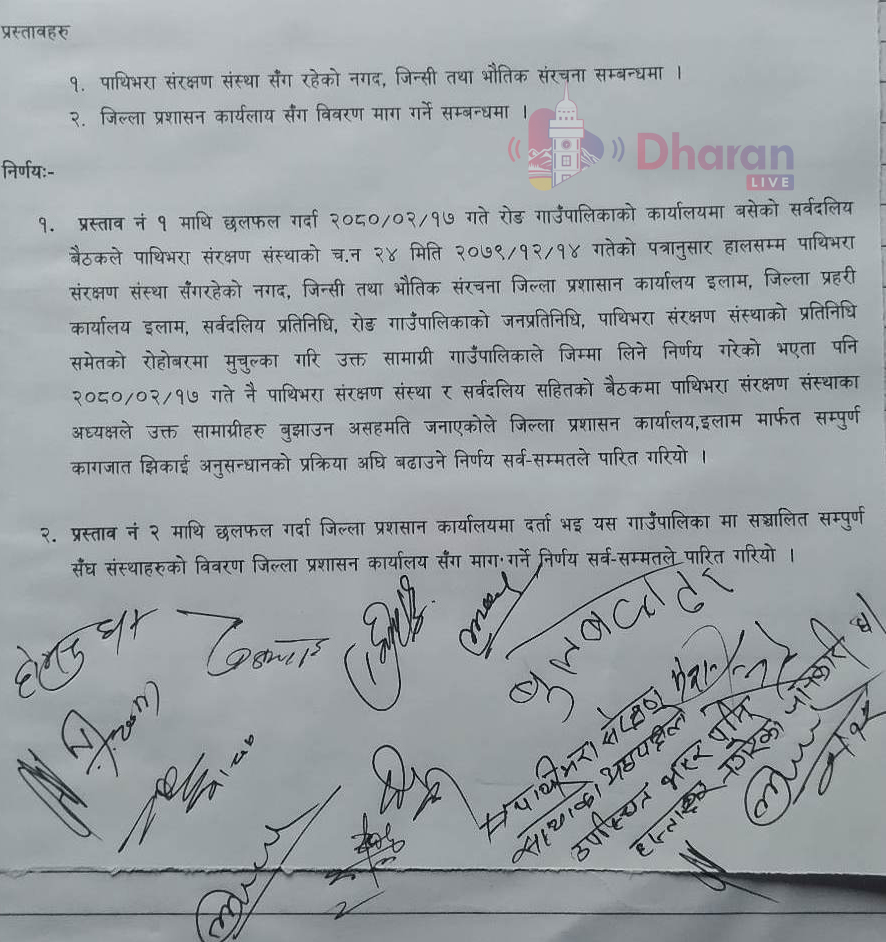 प्रस्तावहरु
१. पाथिभरा संरक्षण संस्था सँग रहेको नगद, जिन्सी तथा भौतिक संरचना सम्बन्धमा ।
२. जिल्ला प्रशासन कार्यलाय सँग विवरण माग गर्ने सम्बन्धमा ।
Dharan
LIVE
निर्णयः-
१. प्रस्ताव नं १ माथि छलफल गर्दा २०८०/०२/१७ गते रोङ गाउँपालिकाको कार्यालयमा बसेको सर्वदलिय
बैठकले पाथिभरा संरक्षण संस्थाको च.न २४ मिति २०७९/१२/१४ गतेको पत्रानुसार हालसम्म पाथिभरा
संरक्षण संस्था सँगरहेको नगद, जिन्सी तथा भौतिक संरचना जिल्ला प्रशासान कार्यालय इलाम, जिल्ला प्रहरी
कार्यालय इलाम, सर्वदलिय प्रतिनिधि, रोङ गाउँपालिकाको जनप्रतिनिधि, पाथिभरा संरक्षण संस्थाको प्रतिनिधि
समेतको रोहोबरमा मुचुल्का गरि उक्त सामाग्री गाउँपालिकाले जिम्मा लिने निर्णय गरेको भएता पनि
२०८०/०२/१७ गते नै पाथिभरा संरक्षण संस्था र सर्वदलिय सहितको बैठकमा पाथिभरा संरक्षण संस्थाका
अध्यक्षले उक्त सामाग्रीहरु बुझाउन असहमति जनाएकोले जिल्ला प्रशासन कार्यालय,इलाम मार्फत सम्पुर्ण
कागजात झिकाई अनुसन्धानको प्रक्रिया अघि बढाउने निर्णय सर्व-सम्मतले पारित गरियो ।
२. प्रस्ताव नं २ माथि छलफल गर्दा जिल्ला प्रशसान कार्यालयमा दर्ता भइ यस गाउँपालिका मा सञ्चालित सम्पुर्ण
सँघ संस्थाहरुको विवरण जिल्ला प्रशासन कार्यालय सँग माग गर्ने निर्णय सर्व-सम्मतले पारित गरियो ।
पाथीभरा संरक्षण
उपस्थित भएर पनि
हस्ताक्षर नगरेको जानकारी